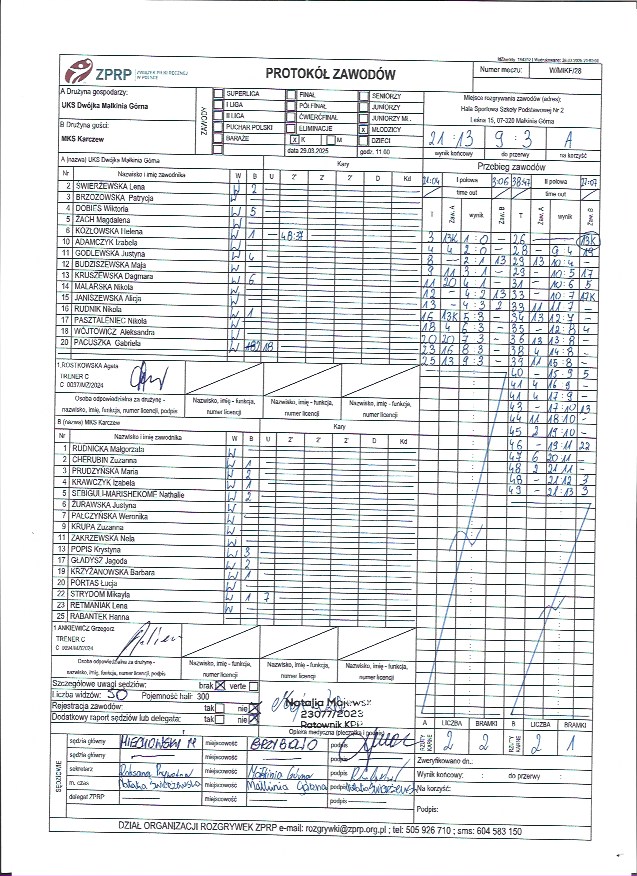 ZPRP ZWIĄZEK PIŁKI RĘCZNEJ W POLSCE
PROTOKÓŁ ZAWODÓW
Numer meczu: W/MKF/28
A Drużyna gospodarzy:
UKS Dwójka Małkinia Górna
B Drużyna gości:
MKS Karczew
ZAWODY
SUPERLIGA FINAŁ SENIORZY
I LIGA PÓŁFINAŁ JUNIORZY
II LIGA ĆWIERĆFINAŁ JUNIORZY MŁ.
PUCHAR POLSKI ELIMINACJE x MŁODZICY
BARAŻE x K M DZIECI
data 29.03.2025 godz. 11:00
Miejsce rozgrywania zawodów (adres):
Hala Sportowa Szkoły Podstawowej Nr 2
Leśna 15, 07-320 Małkinia Górna
21 : 13 9 : 3 A
wynik końcowy do przerwy na korzyść
A (nazwa) UKS Dwójka Małkinia Górna Kary
Nr Nazwisko i imię zawodnika W B U 2' 2' 2' D D Kd
2 ŚWIERZEWSKA Lena W 2
3 BRZOZOWSKA Patrycja W
4 DOBIES Wiktoria W 5
5 ŻACH Magdalena W
6 KOZŁOWSKA Helena W 1 48:37
10 ADAMCZYK Izabela W
11 GODLEWSKA Justyna W 4
12 BUDZISZEWSKA Maja W
13 KRUSZEWSKA Dagmara W 6
14 MALARSKA Nikola W
15 JANISZEWSKA Alicja W
16 RUDNIK Nikola W 1
17 PASZTALENIEC Nikola W
18 WÓJTOWICZ Aleksandra W
20 PACUSZKA Gabriela W
1 ROSTKOWSKA Agata
TRENER C
C 0037/MZ/2024
Osoba odpowiedzialna za drużynę -
nazwisko, imię, funkcja, numer licencji, podpis
Nazwisko, imię - funkcja, numer licencji
Nazwisko, imię - funkcja, numer licencji
Nazwisko, imię - funkcja, numer licencji
B (nazwa) MKS Karczew Kary
Nr Nazwisko i imię zawodnika W B U 2' 2' 2' D D Kd
1 RUDNICKA Małgorzata W
2 CHERUBIN Zuzanna W 1
3 PRUDZYŃSKA Maria W 2
4 KRAWCZYK Izabela W 1
5 SEBIGUI-MARISHEKOME Nathalie W 2
6 ŻURAWSKA Justyna W
7 PAŁCZYŃSKA Weronika W
9 KRUPA Zuzanna W
11 ZAKRZEWSKA Nela W
13 POPIS Krystyna W 3
17 GŁADYSZ Jagoda W 2
19 KRZYŻANOWSKA Barbara W 1
20 PORTAS Łucja W
22 STRYDOM Mikayla W 1 7
23 RETMANIAK Lena W
25 RABANTEK Hanna W
1 ANKIEWICZ Grzegorz
TRENER C
Osoba odpowiedzialna za drużynę -
nazwisko, imię, funkcja, numer licencji, podpis
Nazwisko, imię - funkcja, numer licencji
Nazwisko, imię - funkcja, numer licencji
Nazwisko, imię - funkcja, numer licencji
Przebieg zawodów
21:04 I połowa 3:06 38:47 II połowa 21:07
time out time out
T Zaw. A wynik Zaw. B T Zaw. A wynik Zaw. B
3 13K 1 : 0 - 26 - 13K
4 4 2 : 0 - 28 - 9 : 4 19
8 - 2 : 1 13 29 13 10 : 4 -
9 11 3 : 1 - 29 - 10 : 5 17
11 20 4 : 1 - 31 - 10 : 6 5
12 - 4 : 2 13 33 - 10 : 7 17K
13 - 4 : 3 2 33 11 11 : 7 -
16 13K 5 : 3 - 34 13 12 : 7 -
18 4 6 : 3 - 35 - 12 : 8 4
20 20 7 : 3 - 36 13 13 : 8 -
23 16 8 : 3 - 38 4 14 : 8 -
25 13 9 : 3 - 39 11 15 : 8 -
40 - 15 : 9 5
41 4 16 : 9 -
41 4 17 : 9 -
43 - 17 : 10 13
44 11 18 : 10 -
45 2 19 : 10 -
46 - 19 : 11 22
47 6 20 : 11 -
48 2 21 : 11 -
48 - 21 : 12 3
49 - 21 : 13 3
Szczegółowe uwagi sędziów: brak x verte
Liczba widzów: 50 Pojemność hali 300
Rejestracja zawodów: tak nie x
Dodatkowy raport sędziów lub delegata: tak nie x
Natalia Majewsz
23077/2023
Ratownik KPP
Opieka medyczna (pieczątka i podpis)
A RZUTY KARNE LICZBA BRAMKI B RZUTY KARNE LICZBA BRAMKI
2 2 2 1
SĘDZIOWIE
sędzia główny miejscowość podpis
sędzia główny miejscowość podpis
sekretarz miejscowość Małkinia Górna podpis
m. czas miejscowość Małkinia Górna podpis
delegat ZPRP miejscowość podpis
Zweryfikowano dn.
Wynik końcowy: : do przerwy :
Na korzyść:
Podpis:
DZIAŁ ORGANIZACJI ROZGRYWEK ZPRP e-mail: rozgrywki@zprp.org.pl ; tel: 505 926 710 ; sms: 604 583 150